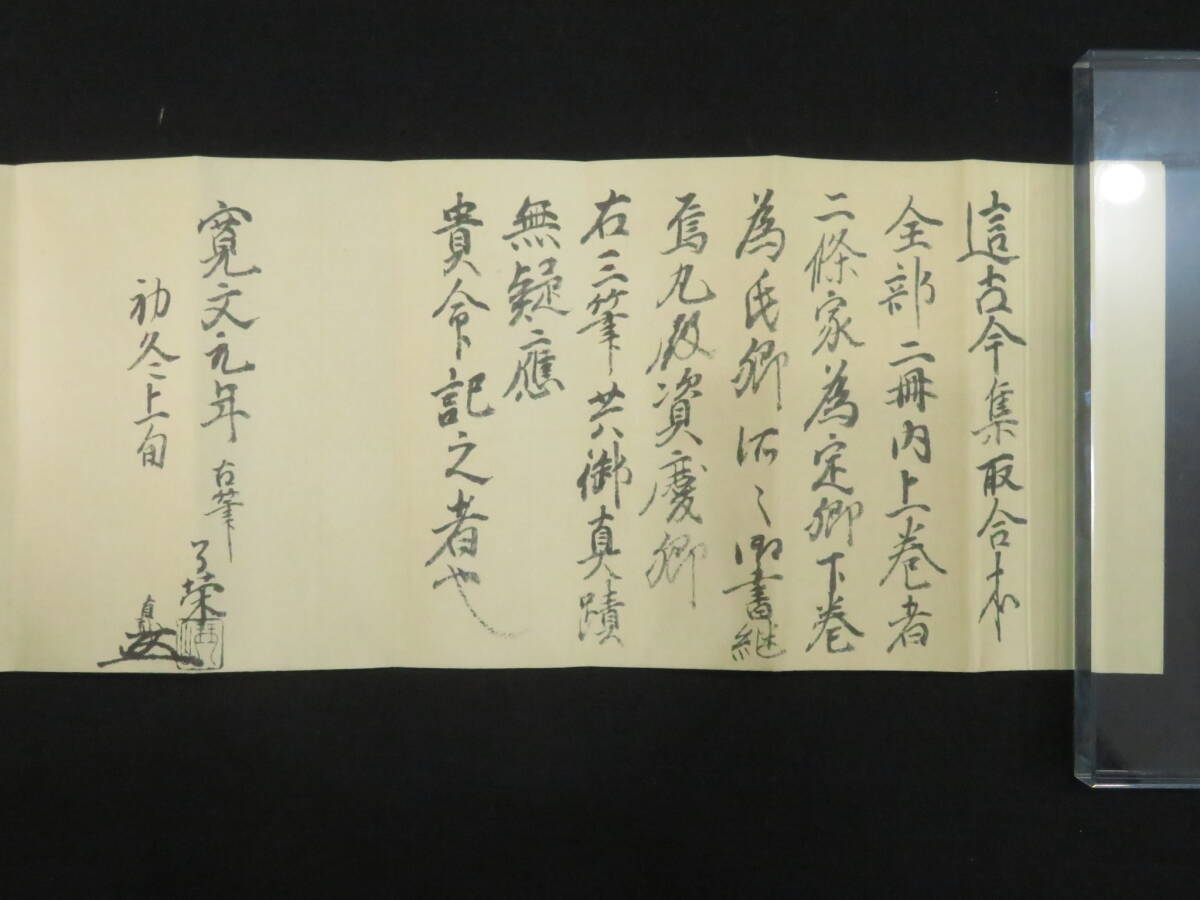 這古今集取合本
全部二冊内上巻者
二條家為定卿下巻
為氏卿所々御書継
烏丸殿資慶卿
右三筆共御真蹟
無疑應
貴命記之者也
寛文元年 古筆 了榮
初冬上旬